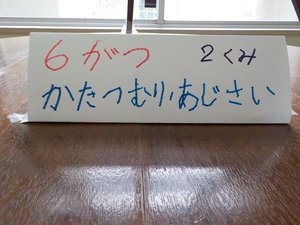 6がつ 2くみ
かたつむり・あじさい